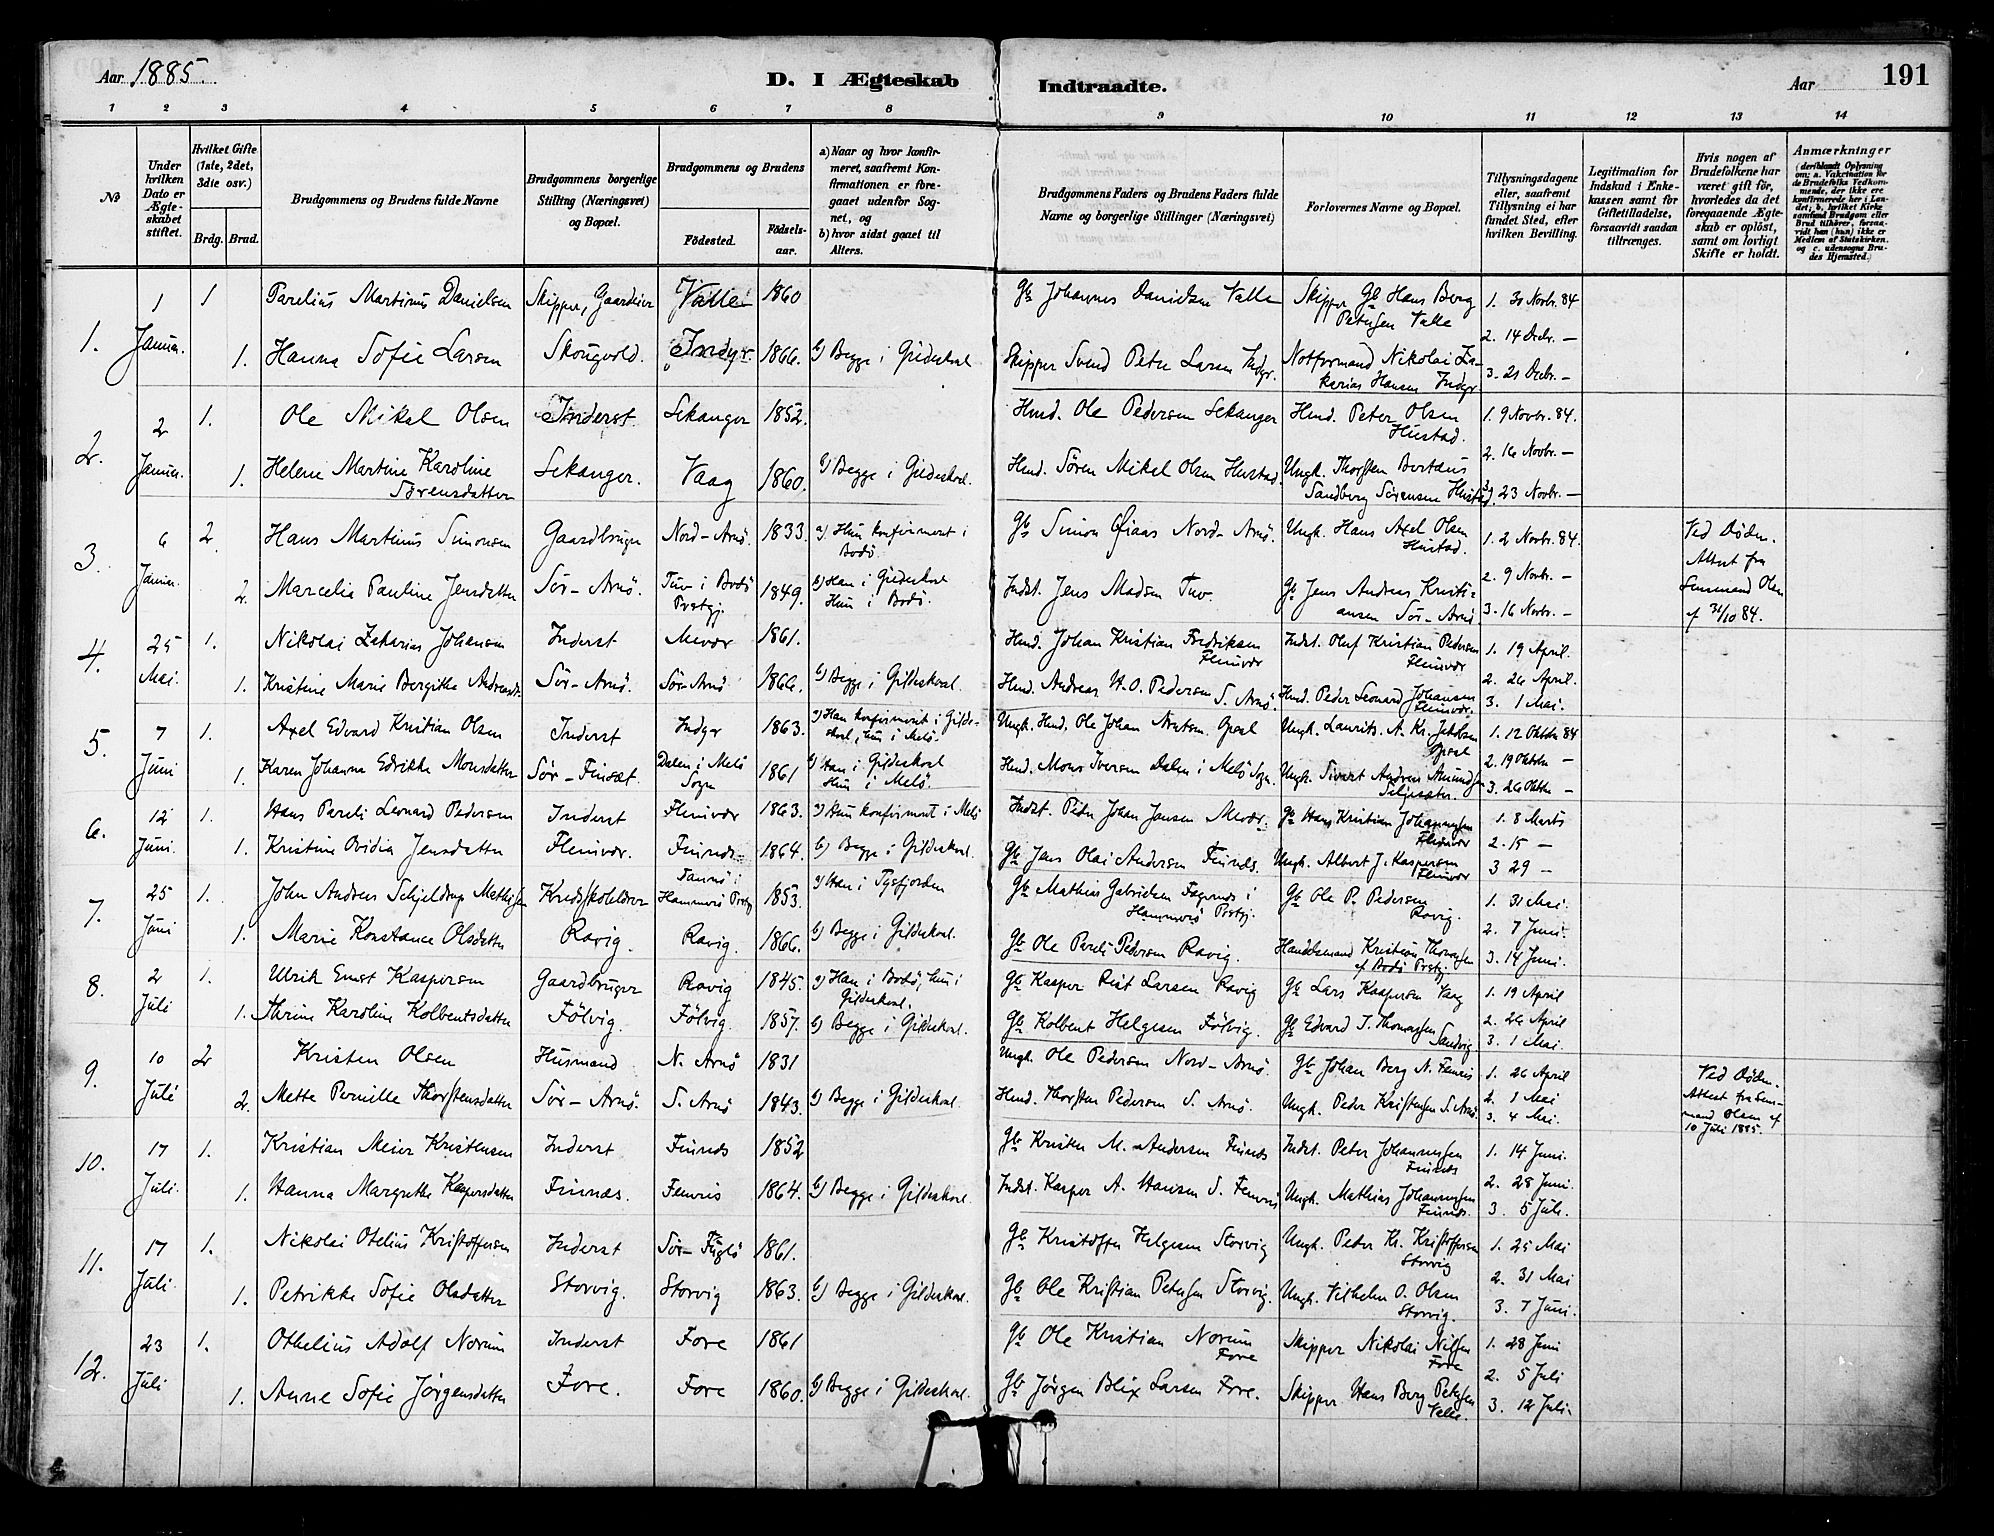 Aar 1885.
D. I Ægteskab Indtraadte.
Aar
191
1 2 3 4 5 6 7 8 9 10 11 12 13 14
№
Under hvilken Dato er Ægteskabet stiftet.
Hvilket Gifte (1ste, 2det, 3die osv.)
Brdg. Brud.
Brudgommens og Brudens fulde Navne
Brudgommens borgerlige Stilling (Næringsvei) og Bopæl.
Brudgommens og Brudens
Fødested. Fødselsaar.
a) Naar og hvor konfirmeret, saafremt Konfirmationen er foregaaet udenfor Sognet, og
b) hvor sidst gaaet til Alters.
Brudgommens Faders og Brudens Faders fulde Navne og borgerlige Stillinger (Næringsvei)
Forlovernes Navne og Bopæl.
Tillysningsdagene eller, saafremt Tillysning ei har fundet Sted, efter hvilken Bevilling.
Legitimation for Indskud i Enkekassen samt for Giftetilladelse, forsaavidt saadan tiltrænges.
Hvis nogen af Brudefolkene har været gift før, hvorledes da det foregaaende Ægteskab er opløst, samt om lovligt Skifte er holdt.
Anmærkninger (deriblandt Oplysning om: a. Vaccination for de Brudefolks Vedkommende, der ikke ere konfirmerede her i Landet; b. hvilket Kirkesamfund Brudgom eller Brud tilhører, forsaavidt han (hun) ikke er Medlem af Statskirken, og c. udensogns Brudes Hjemsted.)
1. 1 Januar. 1 Parelius Martinus Danielsen Skipper, Gaardeier Valle 1860 Gb Johannes Danielsen Valle Skipper Gb Hans Berg Petersen Valle 1. 30 Novbr. 84
2. 14 Decbr. —
1. Hanna Sofie Larsen Skougvold. Indyr. 1866. b) Begge i Gildeskaal Skipper Svend Peter Larsen Indyr. Notformand Nikolai Zakarias Hansen Indyr 3. 21 Decbr. —
2. 2 Januar. 1. Ole Mikal Olsen Inderst Sekanger 1852. Hmd. Ole Pedersen Sekanger Hmd. Peter Olsen Hustad. 1. 9 Novbr. 84.
2. 16 Novbr. —
1. Helene Martine Karoline Sørensdatter Sekanger. Vaag 1860. b) Begge i Gildeskaal. Hmd. Søren Mikal Olsen Hustad. Ungk. Thorsten Bertæus Sandberg Sørensen Hustad 3) 23 Novbr. —
3. 6 Januar. 2. Hans Martinus Simonsen Gaardbruger Nord-Arnø. 1833. a) Hun konfirmert i Bodø. Gb Simon Nord-Arnø. Ungk. Hans Axel Olsen Hustad. 1. 2 Novbr. 84. Ved Døden.
2. Marcelia Pauline Jensdatter Sør-Arnø. Tuv i Bodø Prstgj. 1849. b) Han i Gildeskaal Hun i Bodø. Indst. Jens Madsen Tuv. Gb Jens Andreas Kristiansen Sør-Arnø 2. 9 Novbr. — Attest fra
3. 16 Novbr. — Lensmand Olsen af 31/10 84.
4. 25 Mai. 1. Nikolai Zakarias Johansen Inderst Mevær 1861. Hmd. Johan Kristian Fredriksen Fleinvær Indst. Oluf Kristian Pedersen Fleinvær 1. 19 April.
2. 26 April.
1. Kristine Marie Bergitte Andreasdtr Sør-Arnø. Sør-Arnø 1866. b) Begge i Gildeskaal. Hmd. Andreas H. O. Pedersen S. Arnø. Hmd. Peder Leonard Johansen Fleinvær. 3. 1 Mai.
5. 7 Juni 1. Axel Edvard Kristian Olsen Inderst Indyr 1863. a) Han konfirmert i Gildeskaal, hun i Melø. Ungk. Hmd. Ole Johan Opsal Ungk. Laurits A. Kr. Jakobsen Opsal 1. 12 Oktbr 84
2. 19 Oktbr —
1. Karen Johanna Edrikke Monsdatter Sør-Finset. Dalen i Melø Sogn 1861 b) Han i Gildeskaal Hun i Melø. Hmd. Mons Iversen Dalen i Melø Sogn. Ungk. Sivert Andreas Amundsen Seljesæter. 3. 26 Oktbr —
6. 12 Juni. 1. Hans Pareli Leonard Pedersen Inderst Fleinvær 1863. a) Hun konfirmert i Melø Indst. Peder Johan Jansen Mevær. Gb Hans Kristian Johannessen Fleinvær 1. 8 Marts
2. 15 —
1. Kristine Ovidia Jensdatter Fleinvær. Finnes 1864. b) Begge i Gildeskaal. Gb Jens Olai Andersen Finnes. Ungk. Albert J. Kaspersen Fleinvær 3 29 —
7. 25 Juni 1. John Andreas Schjeldrup Mathisen Kredsskolelærer Hammerø Prstgj 1853. a) Han i Tysfjorden Gb Mathias Gabrielsen i Hammerø Prstgj. Gb Ole P. Pedersen Ravig. 1. 31 Mai.
2. 7 Juni.
1. Marie Konstance Olsdatter Ravig. Ravig. 1866. b) Begge i Gildeskaal. Gb Ole Pareli Pedersen Ravig. Handelsmand Kristian Thomassen af Bodø Prstgj. 3. 14 Juni.
8. 2 Juli 1. Ulrik Ernst Kaspersen Gaardbruger Ravig 1845. a) Han i Bodø, hun i Gildeskaal. Gb Kasper Rist Larsen Ravig Gb Lars Kaspersen Vaag 1. 19 April
2. 26 April
1. Thrine Karoline Kolbentsdatter Følvig. Følvig. 1857. b) Begge i Gildeskaal. Gb Kolbent Helgesen Følvig. Gb Edvard J. Thomassen Sandvig 3. 1 Mai.
9. 10 Juli 2 Kristen Olsen Husmand N. Arnø 1831 Ungk. Ole Pedersen Nord-Arnø. Gb Johan Berg N. Femris 1. 26 April Ved Døden.
2. 1 Mai
2. Mette Pernille Thorstensdatter Sør-Arnø. S. Arnø 1843. b) Begge i Gildeskaal. Hmd. Thorsten Pedersen S. Arnø. Ungk. Peder Kristensen S. Arnø. 3. 4 Mai. Attest fra Lensmand Olsen af 10 Juli 1885.
10. 17 Juli. 1. Kristian Meier Kristensen Inderst Finnes 1852 Gb Kristen M. Andersen Finnes Indst. Peter Johannessen Finnes 1. 14 Juni.
2. 28 Juni.
1. Hanna Margrethe Kaspersdatter Finnes. Femris 1864. b) Begge i Gildeskaal. Indst. Kasper A. Hansen S. Femris Ungk. Mathias Johannessen Finnes. 3. 5 Juli.
11. 17 Juli. 1. Nikolai Otelius Kristoffersen Inderst Sør-Fuglø 1861. Gb Kristoffer Helgesen Storvig Ungk. Peter Kr. Kristoffersen Storvig 1. 25 Mai
2. 31 Mai
1. Petrikke Sofie Olsdatter Storvig. Storvig 1863. b) Begge i Gildeskaal. Gb Ole Kristian Petersen Storvig. Ungk. Vilhelm O. Olsen Storvig. 3. 7 Juni.
12. 23 Juli 1. Othelius Adolf Norum Inderst Fore 1861 Gb Ole Kristian Norum Fore Skipper Nikolai Nilsen Fore 1. 28 Juni
2. 5 Juli
1. Anne Sofie Jørgensdatter Fore. Fore 1860. b) Begge i Gildeskaal. Gb Jørgen Blix Larsen Fore. Skipper Hans Berg Petersen Valle. 3. 12 Juli.